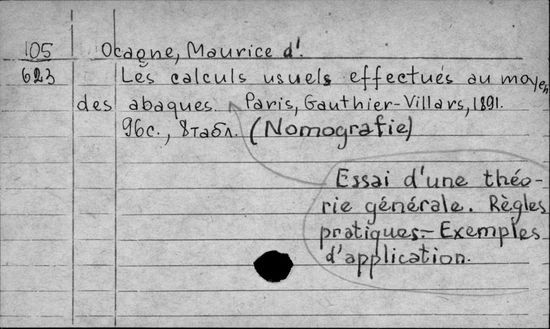 105 Ocagne, Maurice d'.
623 Les calculs usuels effectués au moyen
des abaques. Paris, Gauthier-Villars, 1891.
96с., 8табл. (Nomografie)
Essai d'une théo-
rie générale. Règles
pratiques.- Exemples
d'application.